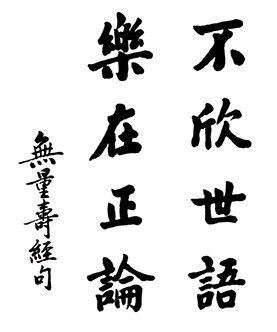 不欣世語
樂在正論
無量壽經句